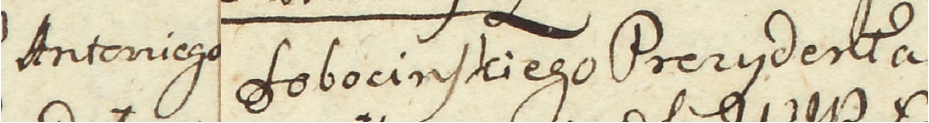 Antoniego Sobocinskiego Prezydenta